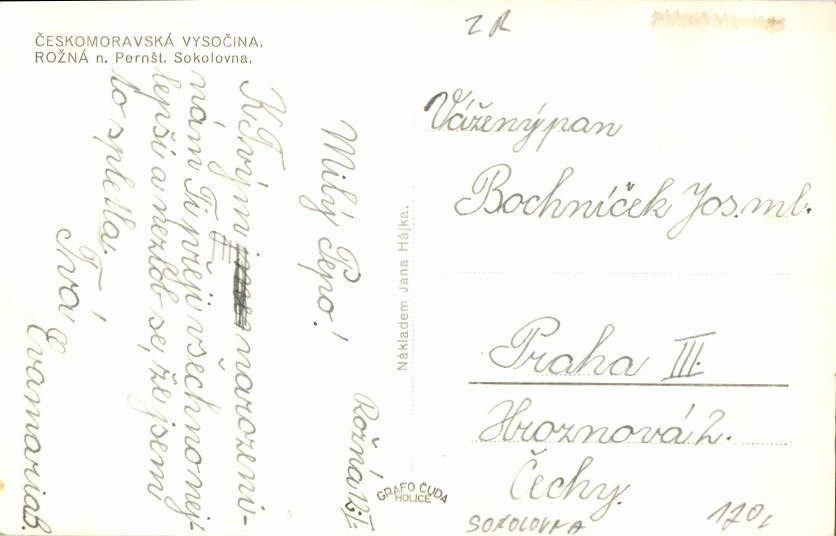 ČESKOMORAVSKÁ VYSOČINA.
ROŽNÁ n. Pernšt. Sokolovna.
Rožná 12./I.
Milý Pepo!
K Tvým narozeni-
nám Ti přeji všechno nej-
lepší a nezlob se, že jsem i
to spletla.
Tvá
Evamariab.
Nákladem Jana Hájka.
GRAFO ČUDA
HOLICE
ZR
Vážený pan
Bochníček Jos. ml.
Praha III.
Hroznová 2.
Čechy.
SOKOLOVNA
170,